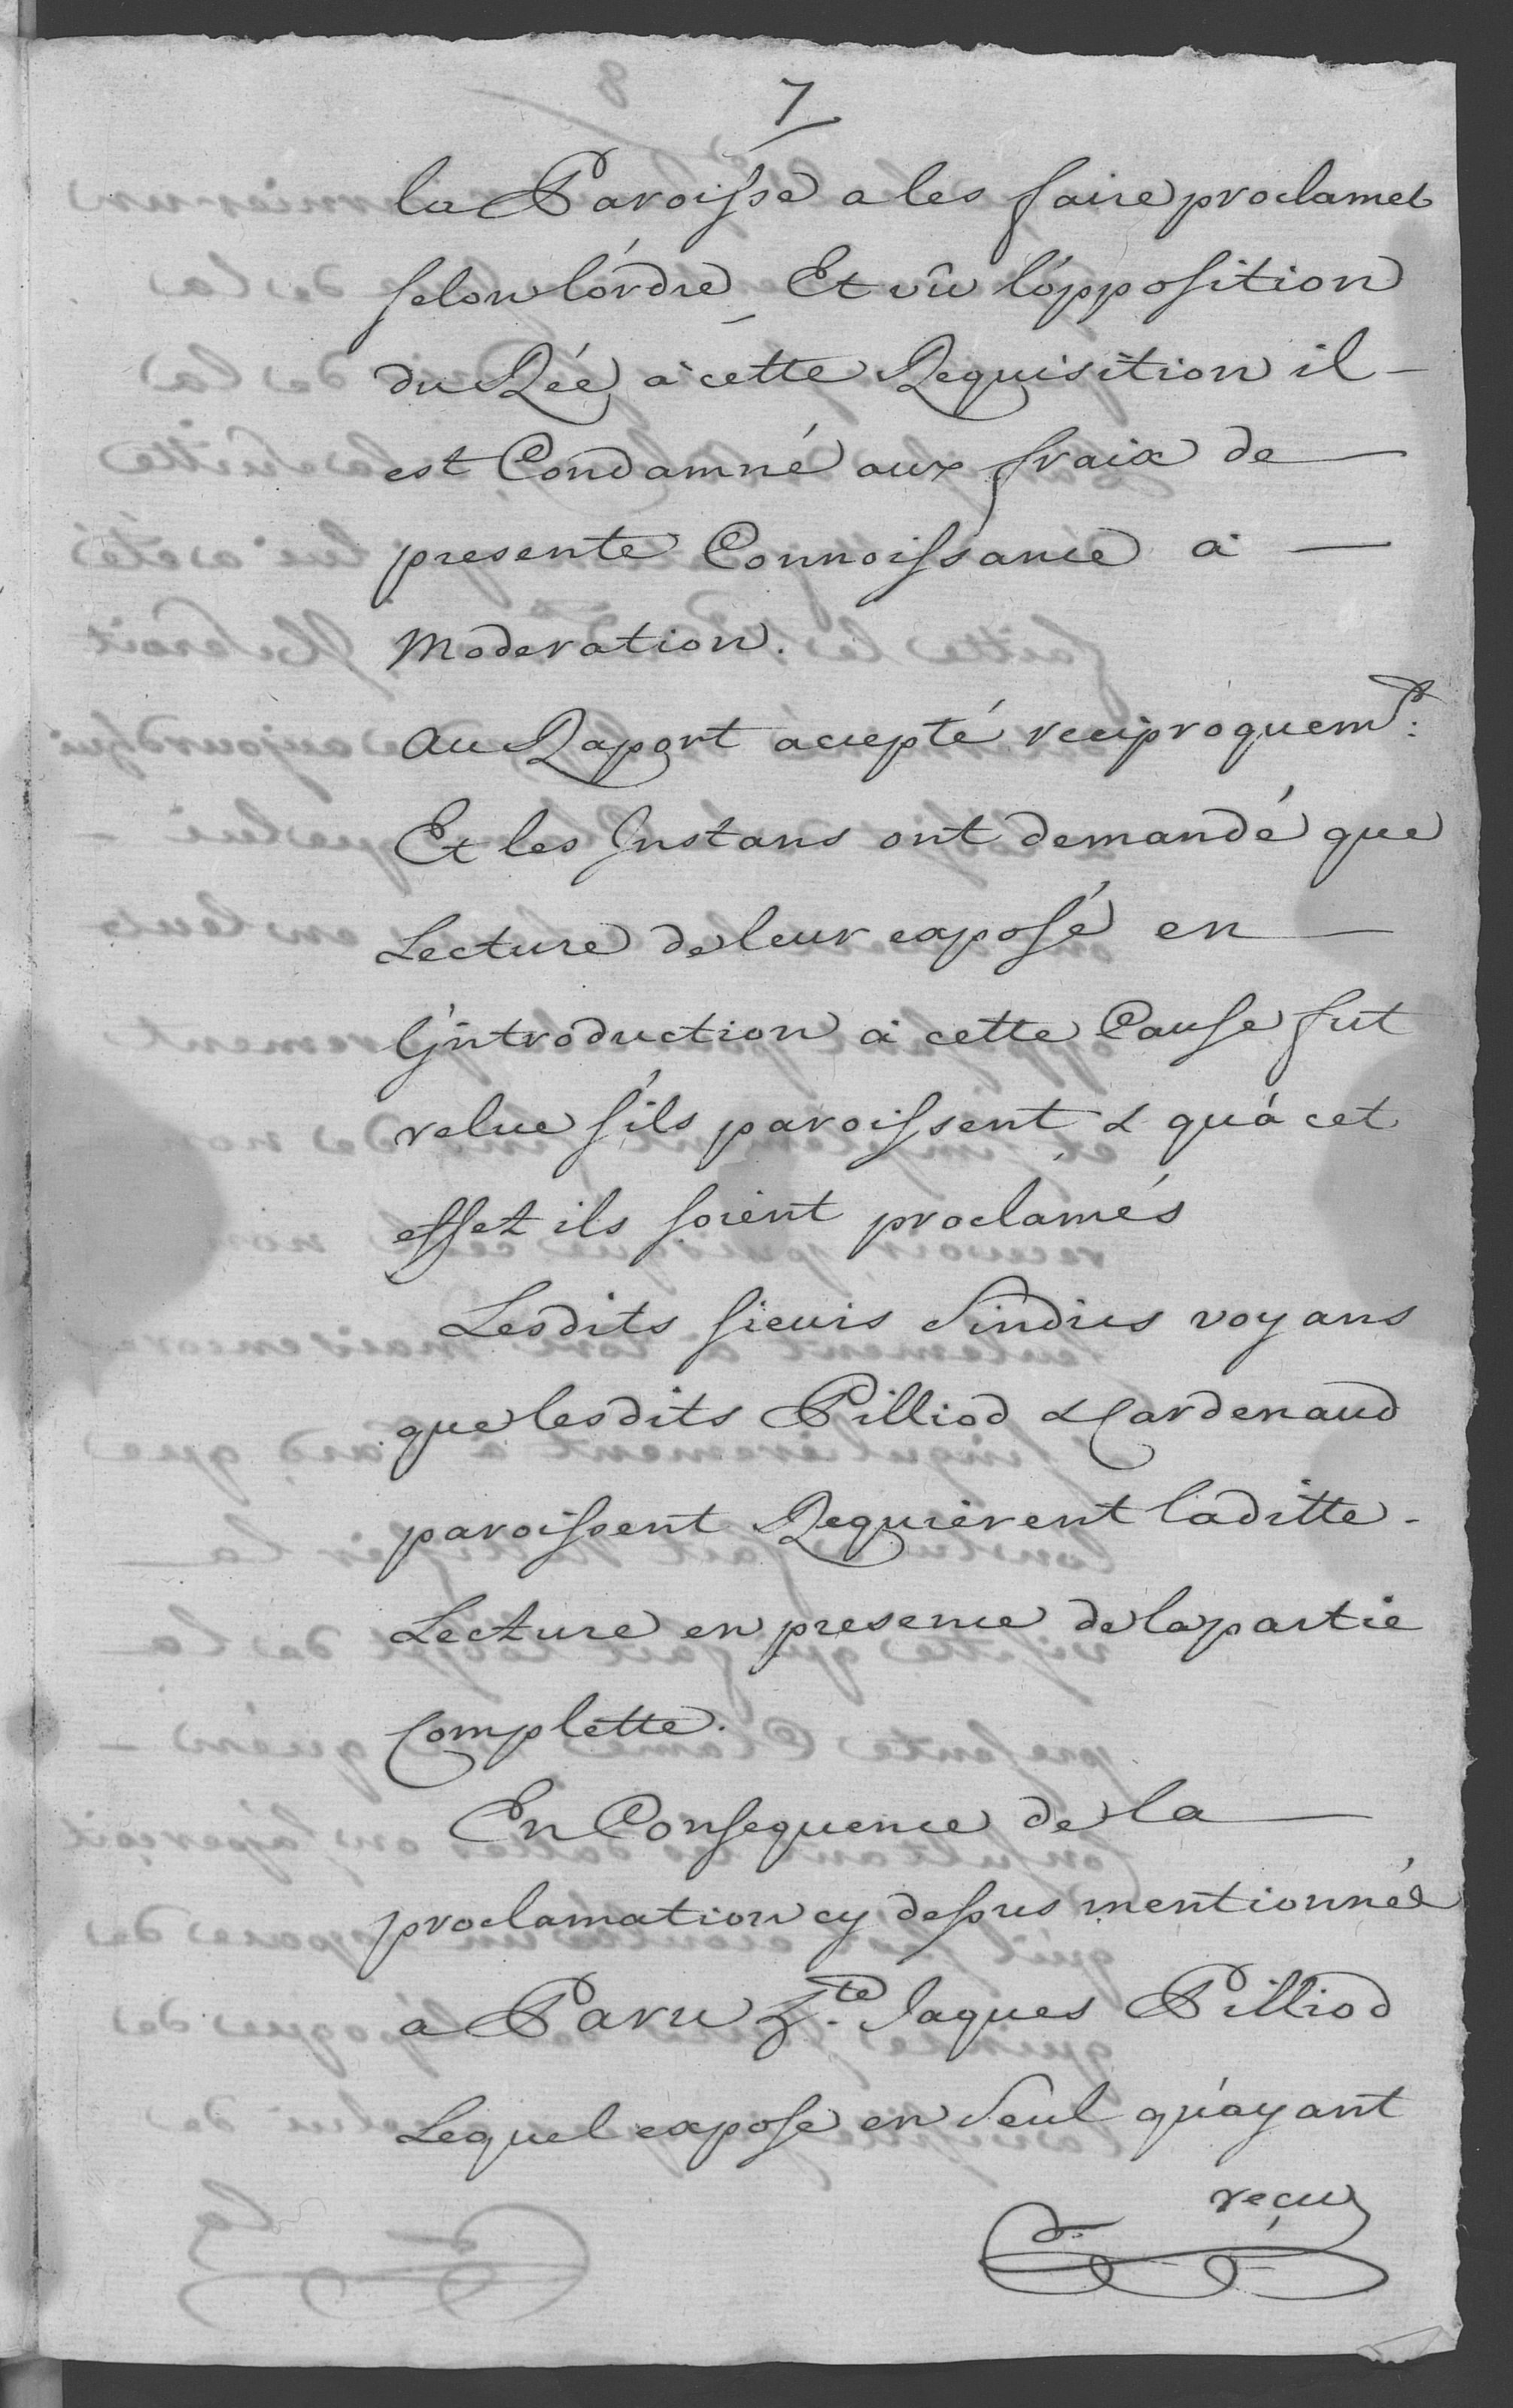 7
la Paroisse a les faire proclamer
selon l'ordre, Et vû l'opposition
du Rée, à cette Requisition il -
est Condamné aux fraix de —
presente Connoissance à —
Moderation.
Au Raport accepté reciproquem.t
Et les Instans ont demandé que
Lecture de leur exposé en —
l'introduction à cette Cause fut
relue s'ils paroissent & qu'à cet
effet ils soient proclamés
Lesdits sieurs Sindics voyans
que lesdits Pilliod & Cardenaud
paroissent Requièrent laditte -
Lecture en presence de la partie
Complette.
En Consequence de la —
proclamation cy dessus mentionnée
a Paru Jaques Pilliod
Lequel expose en Seul qu'ayant
reçu